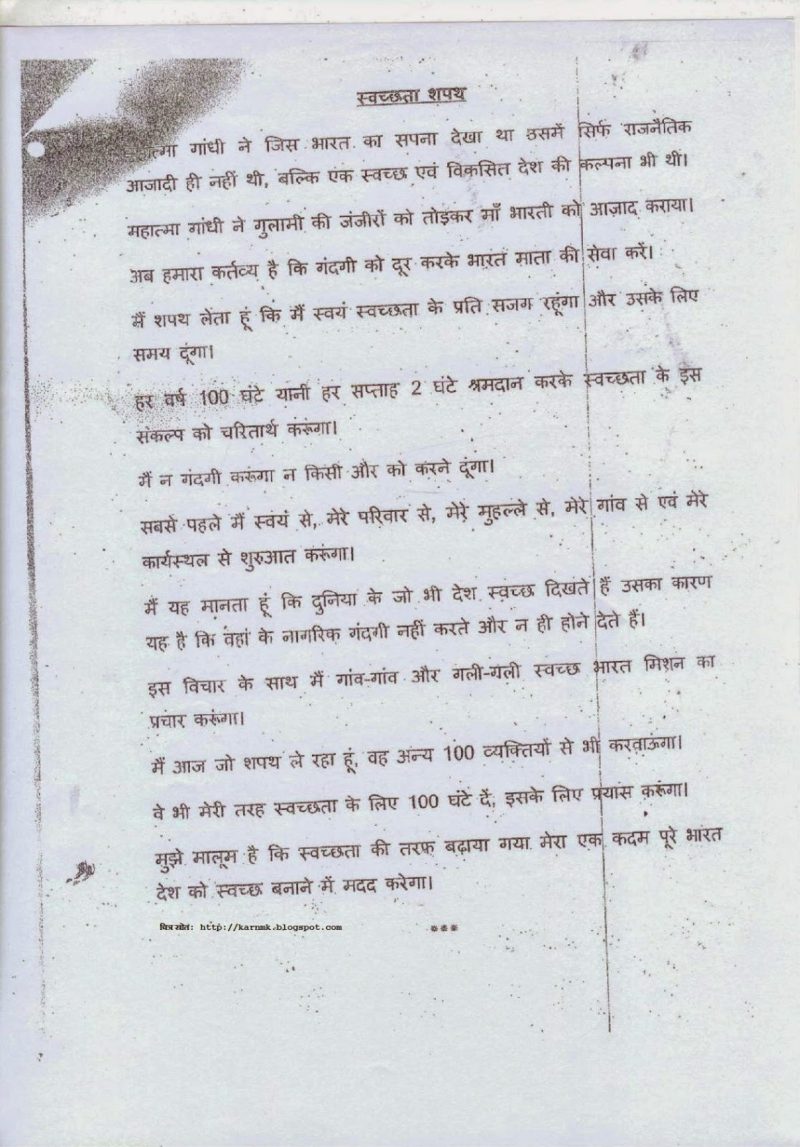 स्वच्छता शपथ
गांधी ने जिस भारत का सपना देखा था उसमें सिर्फ राजनैतिक
आजादी ही नहीं थी, बल्कि एक स्वच्छ एवं विकसित देश की कल्पना भी थी।
महात्मा गांधी ने गुलामी की जंजीरों को तोड़कर माँ भारती को आज़ाद कराया।
अब हमारा कर्तव्य है कि गंदगी को दूर करके भारत माता की सेवा करें।
मैं शपथ लेता हूं कि मैं स्वयं स्वच्छता के प्रति सजग रहूंगा और उसके लिए
समय दूंगा।
हर वर्ष 100 घंटे यानी हर सप्ताह 2 घंटे श्रमदान करके स्वच्छता के इस
संकल्प को चरितार्थ करूंगा।
मैं न गंदगी करूंगा न किसी और को करने दूंगा।
सबसे पहले मैं स्वयं से, मेरे परिवार से, मेरे मुहल्ले से, मेरे गांव से एवं मेरे
कार्यस्थल से शुरुआत करूंगा।
मैं यह मानता हूं कि दुनिया के जो भी देश स्वच्छ दिखते हैं उसका कारण
यह है कि वहां के नागरिक गंदगी नहीं करते और न ही होने देते हैं।
इस विचार के साथ मैं गांव-गांव और गली-गली स्वच्छ भारत मिशन का
प्रचार करूंगा।
मैं आज जो शपथ ले रहा हूं, वह अन्य 100 व्यक्तियों से भी करवाऊंगा।
वे भी मेरी तरह स्वच्छता के लिए 100 घंटे दें, इसके लिए प्रयास करूंगा।
मुझे मालूम है कि स्वच्छता की तरफ़ बढ़ाया गया मेरा एक कदम पूरे भारत
देश को स्वच्छ बनाने में मदद करेगा।
चित्र स्रोत: http://karnmk.blogspot.com ***